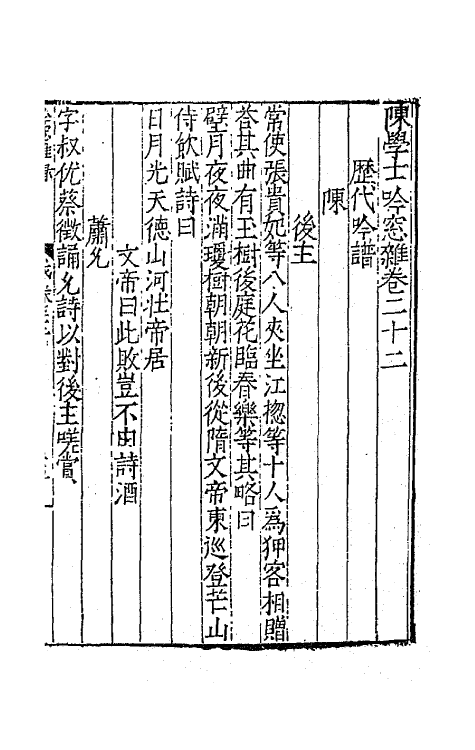 陳學士吟窓雜卷二十二
歷代吟譜
陳
後主
常使張貴妃等八人夾坐江揔等十人爲狎客相贈
荅其曲有玉樹後庭花臨春樂等其略曰
璧月夜夜滿瓊樹朝朝新後從隋文帝東巡登芒山
侍飲賦詩曰
日月光天德山河壯帝居
文帝曰此敗豈不由詩酒
蕭允
字叔佐蔡徵誦允詩以對後主嗟賞